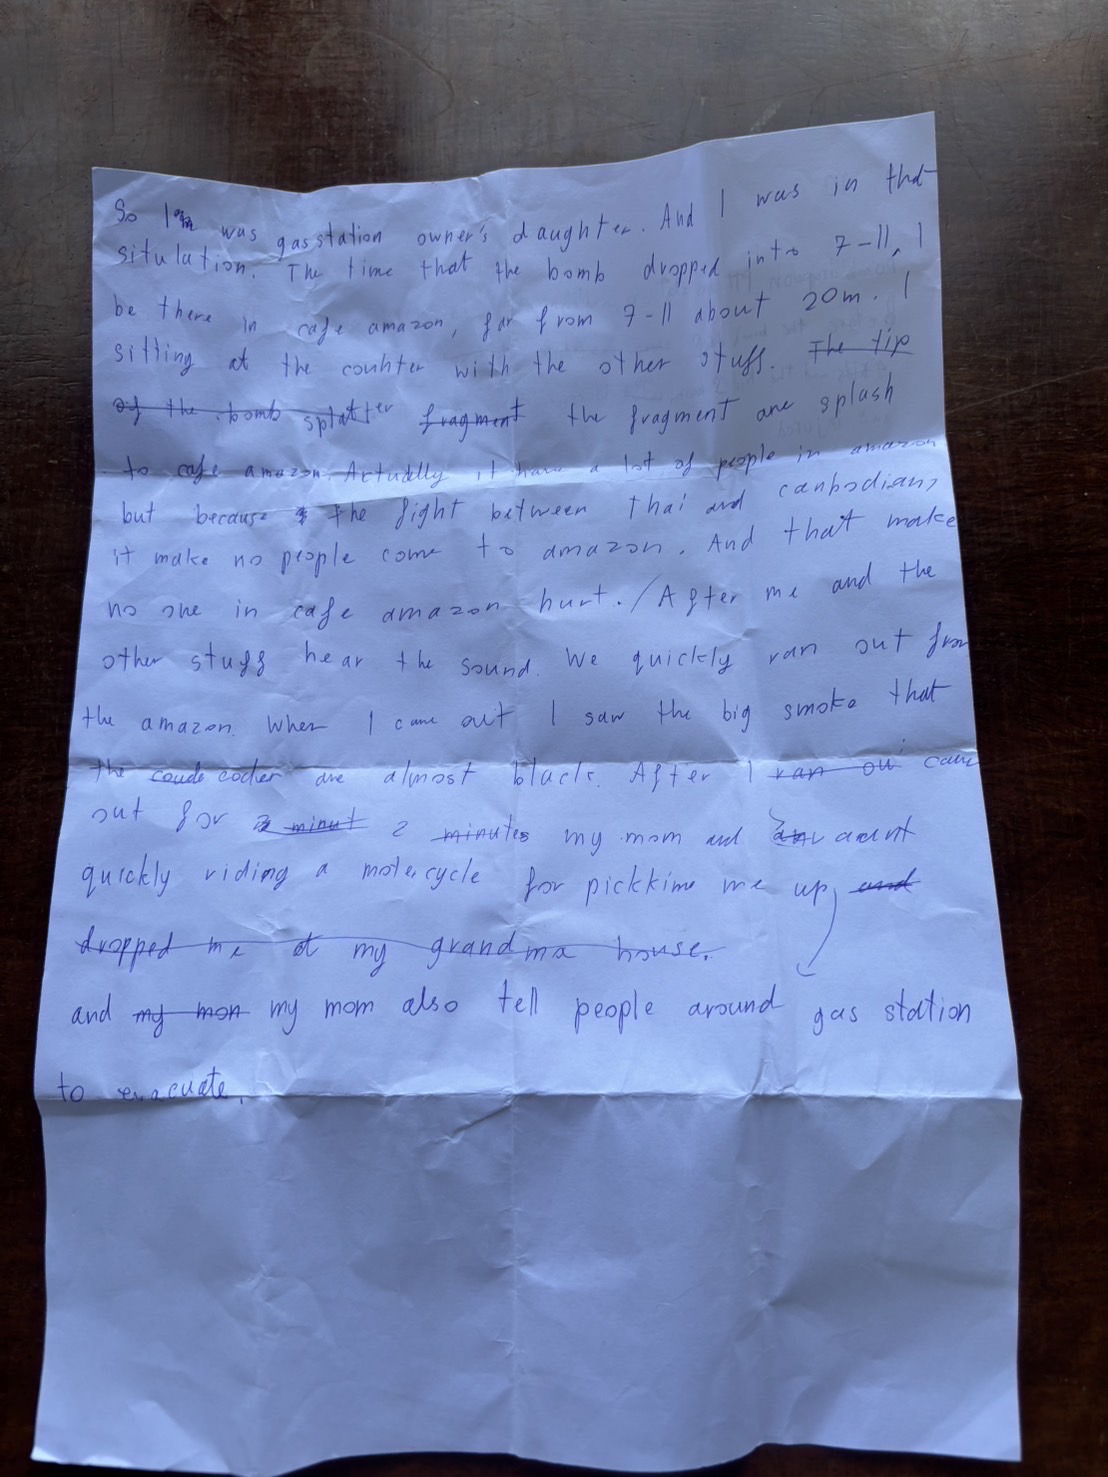 So I was gasstation owner's daughter. And I was in that
situlation. The time that the bomb dropped into 7-11, I
be there in cafe amazon, far from 7-11 about 20m. I
sitting at the counter with the other stuff. The tip
of the bomb splatter fragment the fragment are splash
to cafe amazon. Actually it have a lot of people in amazon
but because the fight between Thai and canbodians
it make no people come to amazon. And that make
no one in cafe amazon hurt. / After me and the
other stuff hear the sound. We quickly ran out from
the amazon. When I came out I saw the big smoke that
the coude coder are almost black. After I ran ou came
out for 2 minut 2 minutes my mom and aunt
quickly riding a motercycle for pickking me up, and
dropped me at my grandma house.
and my mon my mom also tell people around gas station
to evacuate.